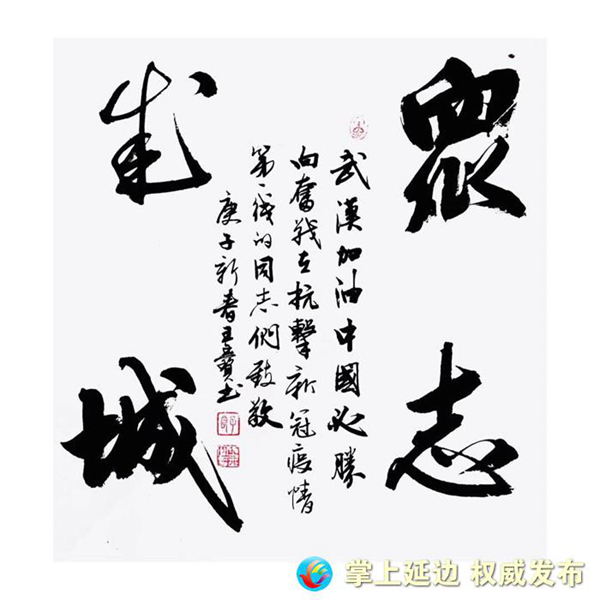 眾志
成城
武漢加油中國必勝
向奮战在抗擊新冠疫情
第一线的同志們致敬
庚子新春王寶书
掌上延边 权威发布